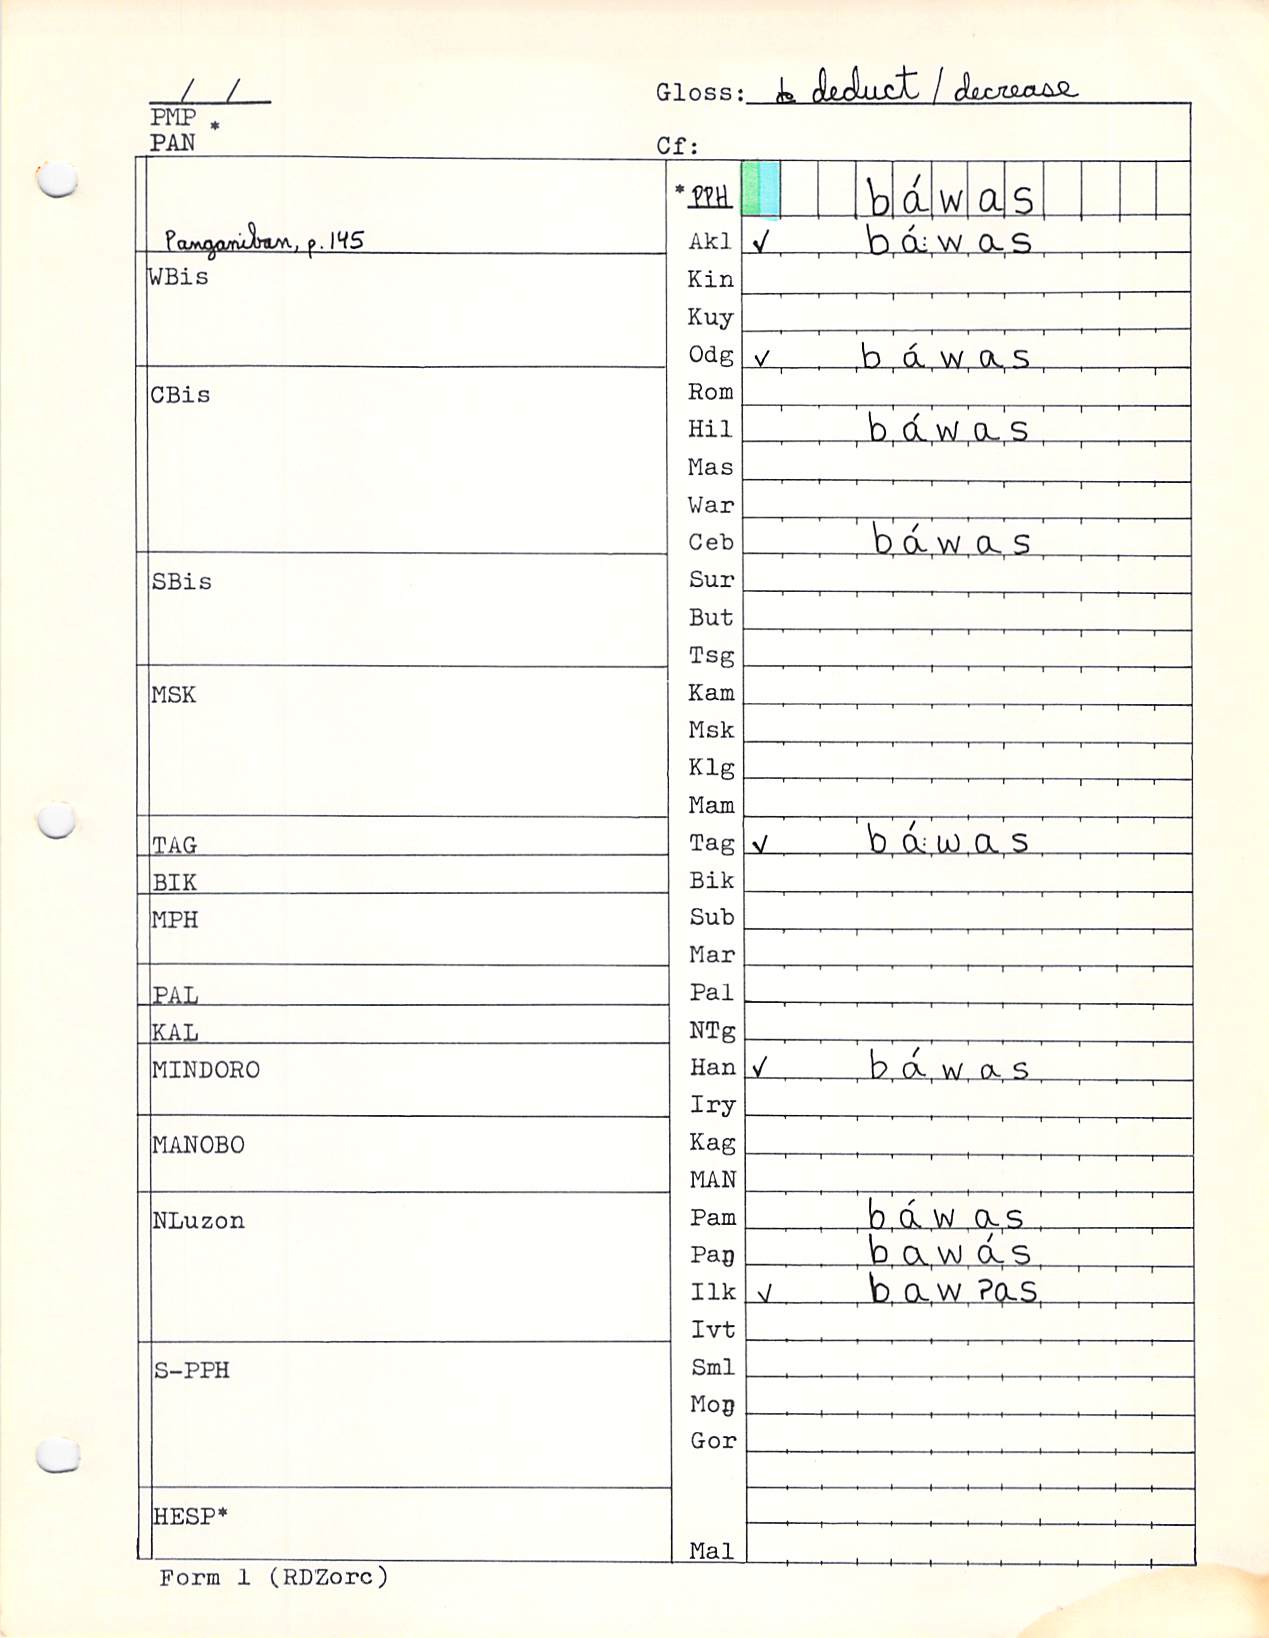 / /
Gloss: to deduct / decrease
PMP *
PAN
Cf:
*PPH báwas
Panganiban, p. 145
Akl ✓ bá:was
WBis
Kin
Kuy
Odg ✓ báwas
CBis
Rom
Hil báwas
Mas
War
Ceb báwas
SBis
Sur
But
Tsg
MSK
Kam
Msk
Klg
Mam
TAG
Tag ✓ bá:was
BIK
Bik
MPH
Sub
Mar
PAL
Pal
KAL
NTg
MINDORO
Han ✓ báwas
Iry
MANOBO
Kag
MAN
NLuzon
Pam báwas
Paŋ bawás
Ilk ✓ bawʔas
Ivt
S-PPH
Sml
Moŋ
Gor
HESP*
Mal
Form 1 (RDZorc)